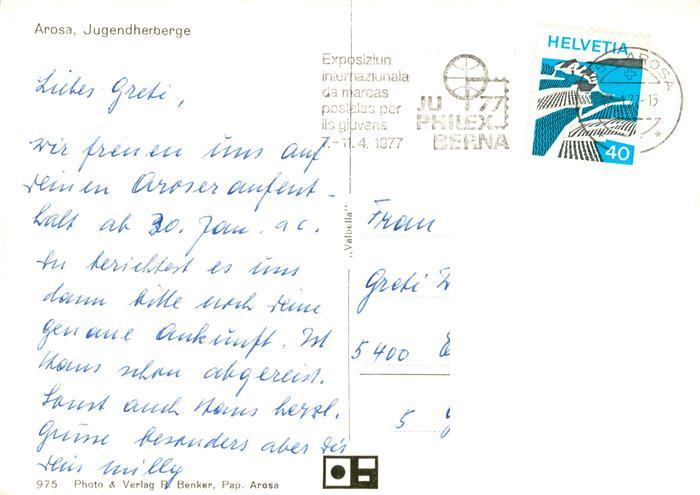 Arosa, Jugendherberge
Liebes Greti,
wir freuen uns auf
deinen Aroseraufent-
halt ab 30. Jan. a c.
Du berichtest es uns
dann bitte noch deine
genaue Ankunft. Ist
Hans schon abgereist.
Sonst auch Hans herzl.
Grüsse besonders aber dir
dein Willy
975 Photo & Verlag R. Benker, Pap. Arosa
„Valbella"
Exposiziun
internaziunala
da marcas
postalas per
ils giuvens
7.-11.4.1977
JU 77
PHILEX
BERNA
HELVETIA
40
AROSA
Frau
Greti
5400
5